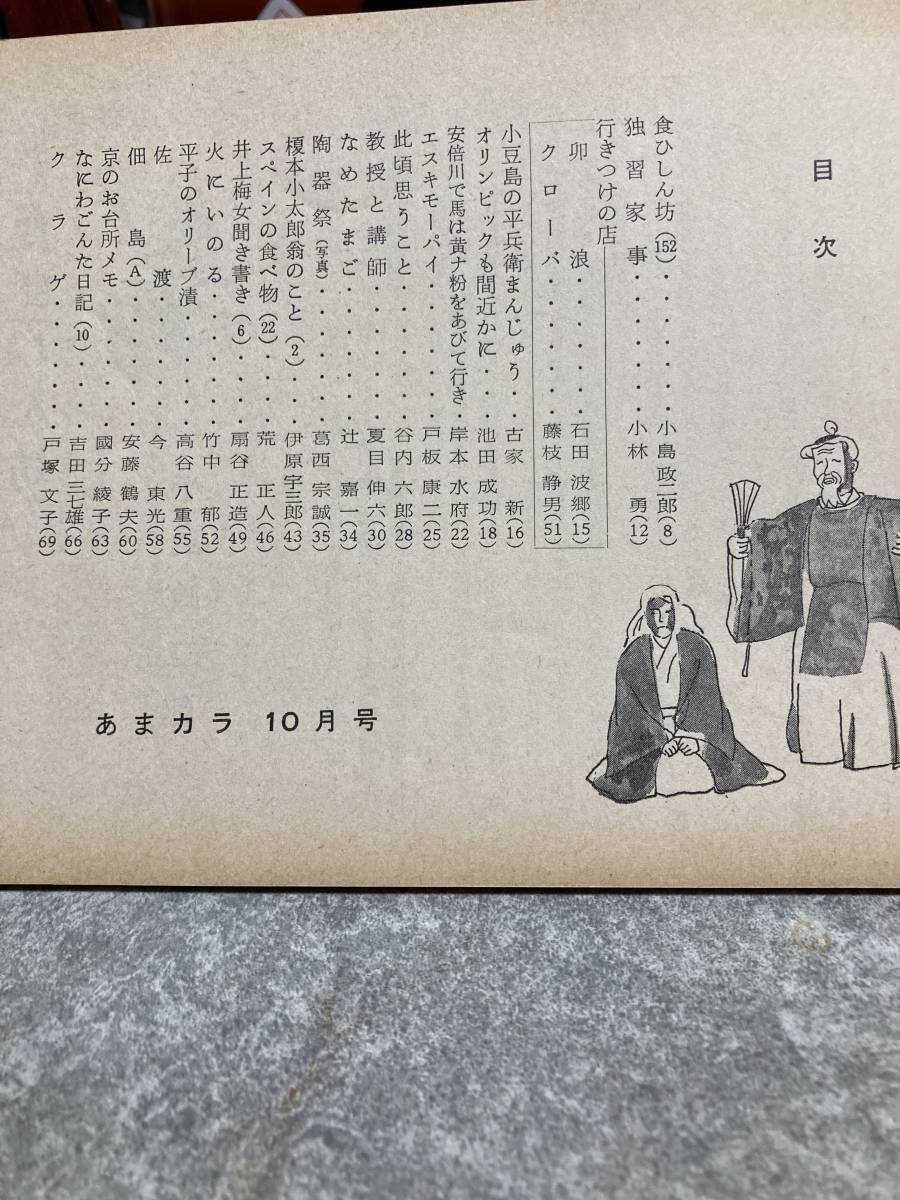 目次
食ひしん坊(152)・・・・・小島政二郎(8)
独習家事・・・・・小林勇(12)
行きつけの店
卯浪・・・・・・石田波郷(15)
クローバ・・・・・藤枝静男(51)
小豆島の平兵衛まんじゅう・・古家新(16)
オリンピックも間近かに・・・池田成功(18)
安倍川で馬は黄ナ粉をあびて行き・岸本水府(22)
エスキモーパイ・・・・・戸板康二(25)
此頃思うこと・・・・・・谷内六郎(28)
教授と講師・・・・・・夏目伸六(30)
なめたまご・・・・・・辻嘉一(34)
陶器祭(写真)・・・・・・葛西宗誠(35)
榎本小太郎翁のこと(2)・・伊原宇三郎(43)
スペインの食べ物(22)・・・荒正人(46)
井上梅女聞き書き(6)・・・扇谷正造(49)
火にいのる・・・・・・竹中郁(52)
平子のオリーブ漬・・・・高谷八重(55)
佐渡・・・・・・今東光(58)
佃島(A)・・・・・安藤鶴夫(60)
京のお台所メモ・・・・・國分綾子(63)
なにわごんた日記(10)・・・吉田三七雄(66)
クラゲ・・・・・・戸塚文子(69)
あまカラ 10月号